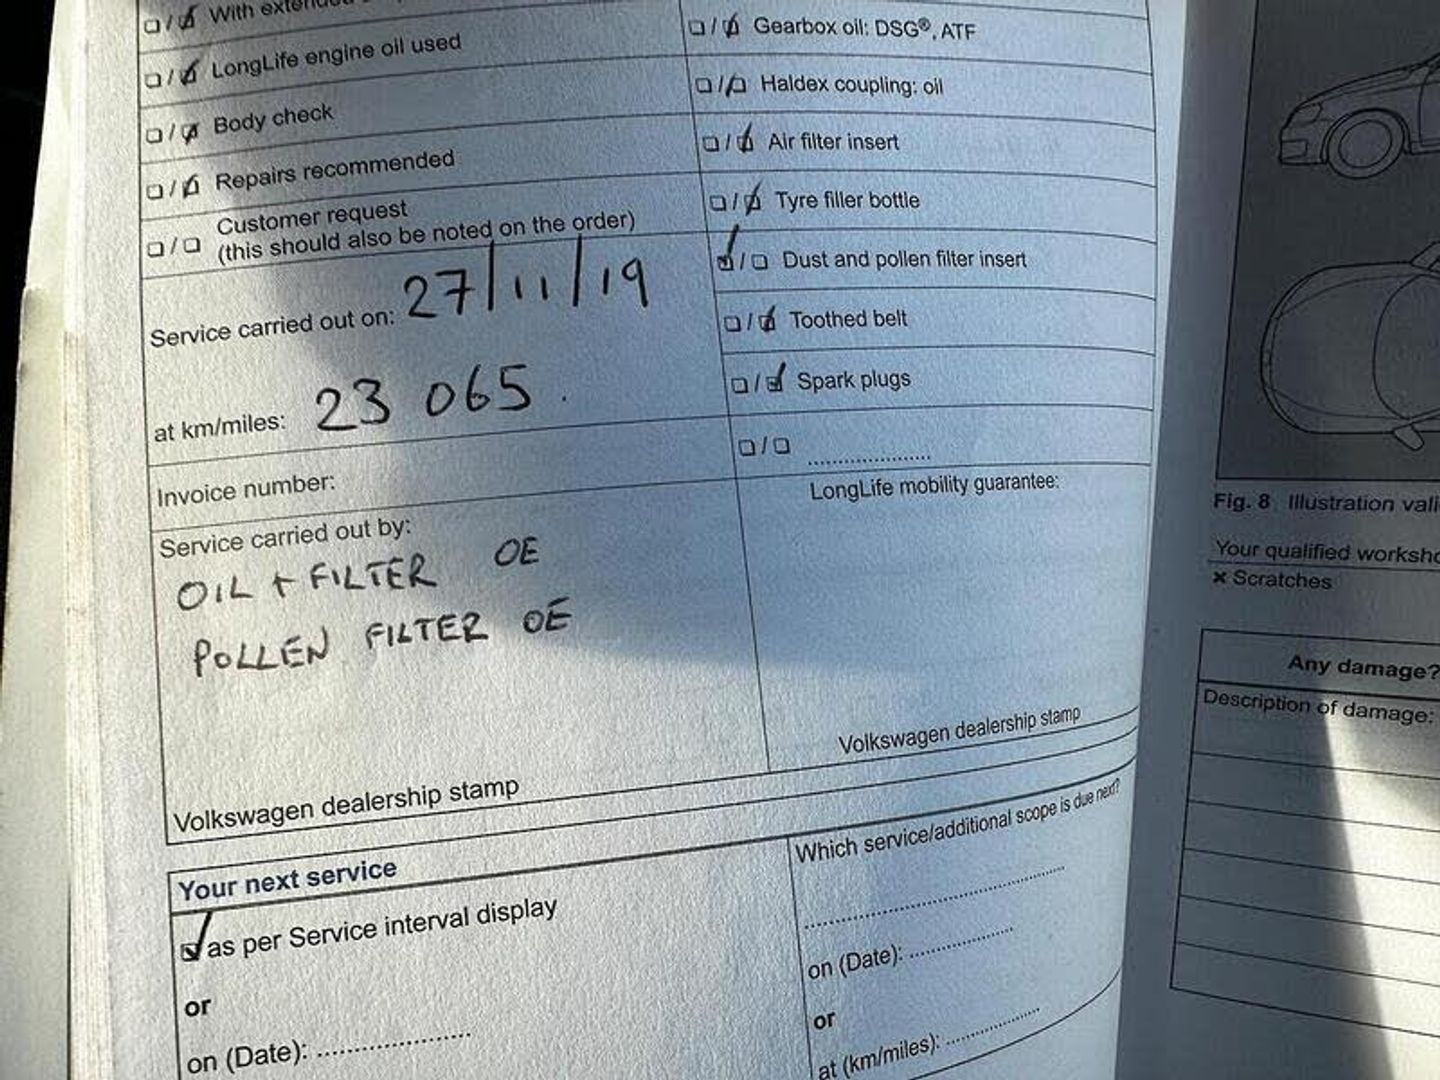 With
LongLife engine oil used
Body check
Repairs recommended
Customer request
(this should also be noted on the order)
Service carried out on: 27/11/19
at km/miles: 23 065.
Invoice number:
Service carried out by:
OIL + FILTER OE
POLLEN FILTER OE
Volkswagen dealership stamp
Gearbox oil: DSG®, ATF
Haldex coupling: oil
Air filter insert
Tyre filler bottle
Dust and pollen filter insert
Toothed belt
Spark plugs
LongLife mobility guarantee:
Volkswagen dealership stamp
Your next service
as per Service interval display
or
on (Date):
Which service/additional scope is due next?
on (Date):
or
at (km/miles):
Fig. 8 Illustration
Your qualified
× Scratches
Any damage?
Description of damage: